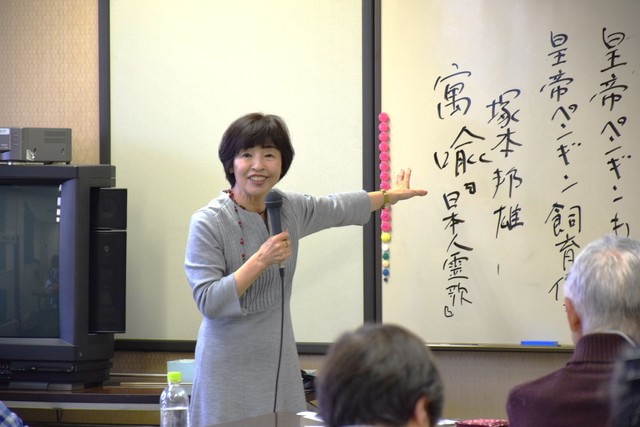 皇帝ペンギンも
皇帝ペンギン飼育
塚本邦雄
『日本人霊歌』
寓喩